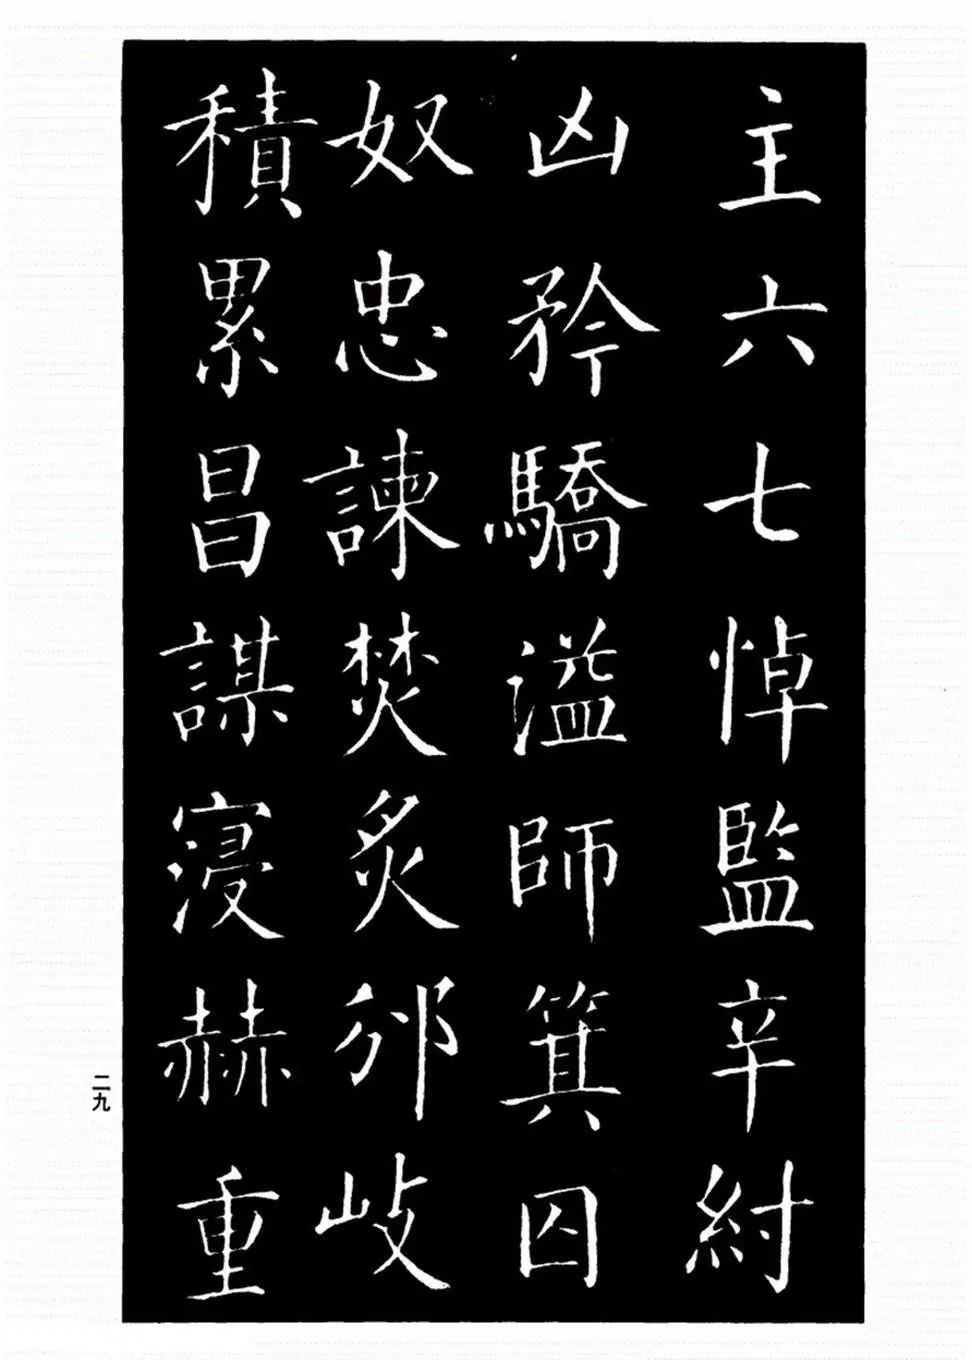 主六七悼監辛紂
凶矜驕溢師箕囚
奴忠諫焚炙邠岐
積累昌謀寖赫重
二九